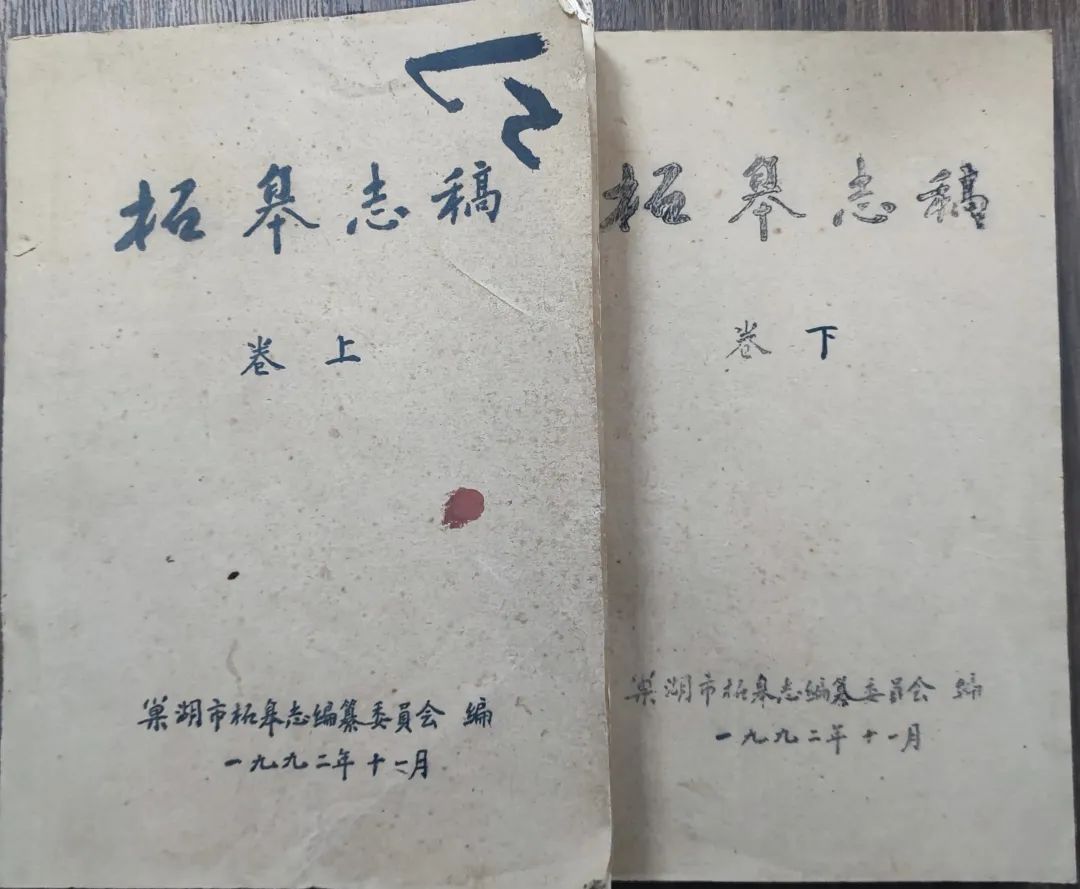 柘皋志稿
卷上
巢湖市柘皋志编纂委員会 编
一九九二年十一月
柘皋志稿
卷下
巢湖市柘皋志编纂委員会 编
一九九二年十一月